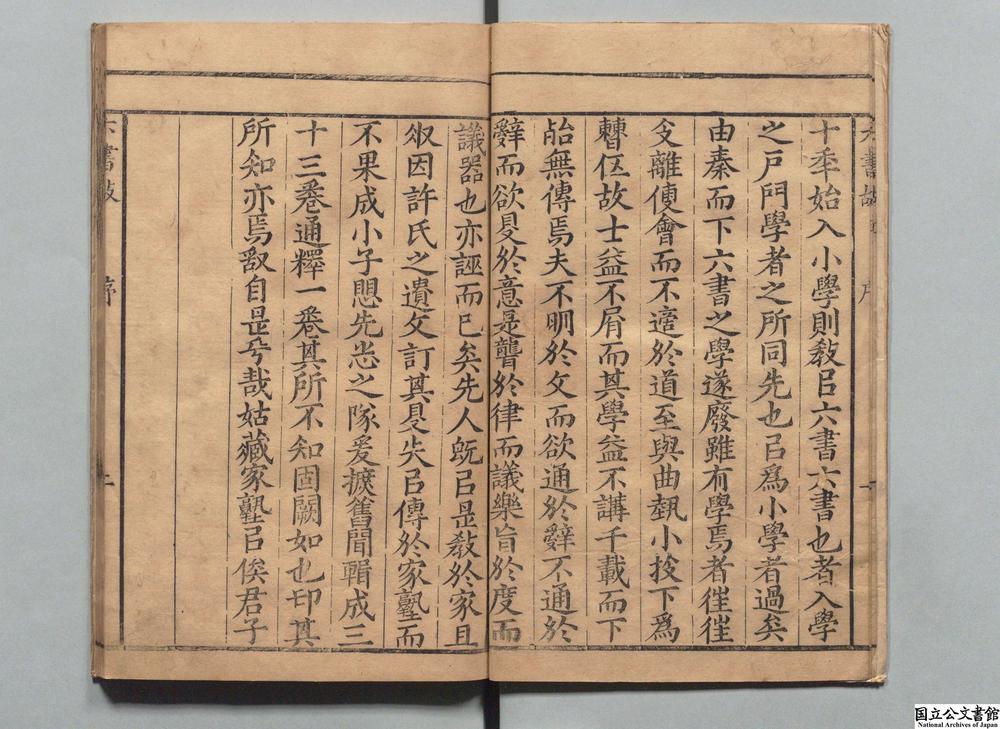 十秊始入小學則敎㠯六書六書也者入學
之戸門學者之所同先也㠯爲小學者過矣
由秦而下六書之學遂廢雖有學焉者徃徃
支離傅會而不適於道至與曲執小技下爲
瞽伍故士益不屑而其學益不講千載而下
殆無傳焉夫不明於文而欲通於辭不通於
辭而欲㝵於意是聾於律而議樂盲於度而
議器也亦誣而已矣先人旣㠯是敎於家且
欲因許氏之遺文訂其㝵失㠯傳於家塾而
不果成小子愳先志之隊爰摭舊聞輯成三
十三卷通釋一卷其所不知固闕如也卬其
所知亦焉敢自是乎哉姑藏家塾㠯俟君子
六書故
序
二
六書故
序
国立公文書館
National Archives of Japan